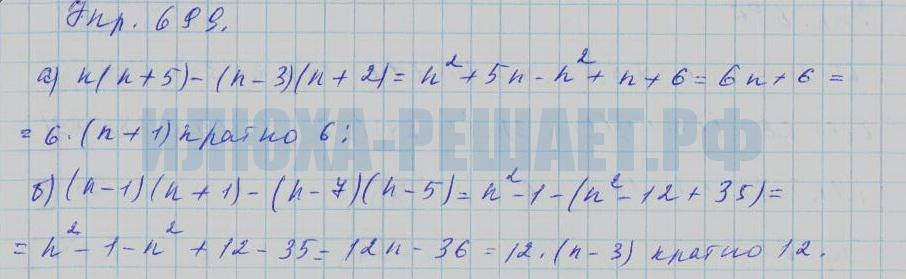 Упр. 699.
а) n(n+5)-(n-3)(n+2)=n²+5n-n²+n+6=6n+6=
=6·(n+1) кратно 6;
ИЛЮХА-РЕШАЕТ.РФ
б) (n-1)(n+1)-(n-7)(n-5)=n²-1-(n²-12+35)=
=n²-1-n²+12-35=12n-36=12·(n-3) кратно 12.